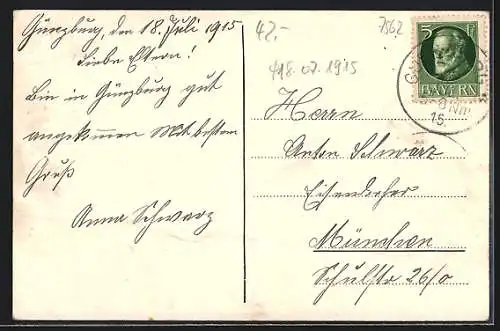 Günzburg, den 18. Juli 1915
Liebe Eltern!
Bin in Günzburg gut
angekommen Mit bestem
Gruß
Anna Schwarz
42.-
7562
418.07.1915
5 Pf
BAYERN
8 Nm
15
Herrn
Anton Schwarz
München
Schulstr 26/0